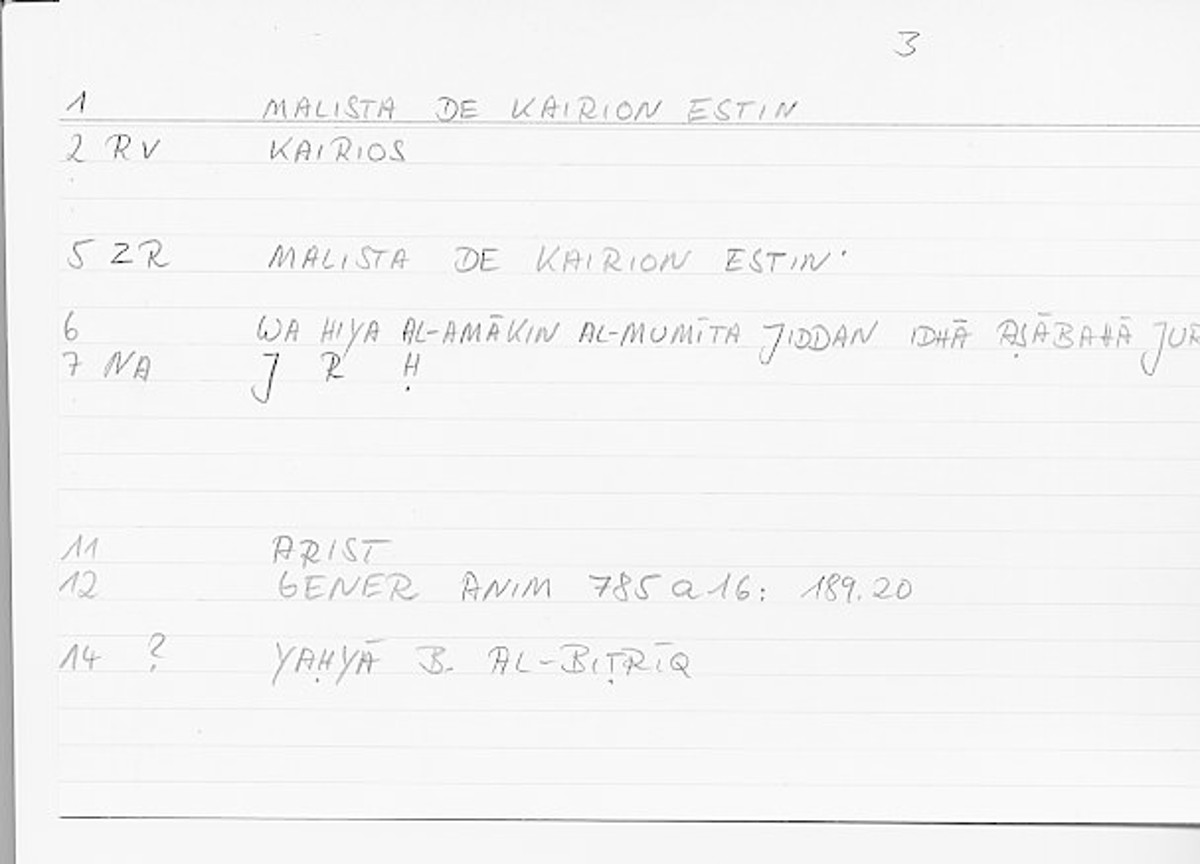 3
1 MALISTA DE KAIRION ESTIN
2 RV KAIRIOS
5 ZR MALISTA DE KAIRION ESTIN·
6 WA HIYA AL-AMĀKIN AL-MUMĪTA JIDDAN IDHĀ AṢĀBAHĀ JUR
7 NA J R Ḥ
11 ARIST
12 GENER ANIM 785 a 16: 189.20
14 ? YAḤYĀ B. AL-BIṬRĪQ